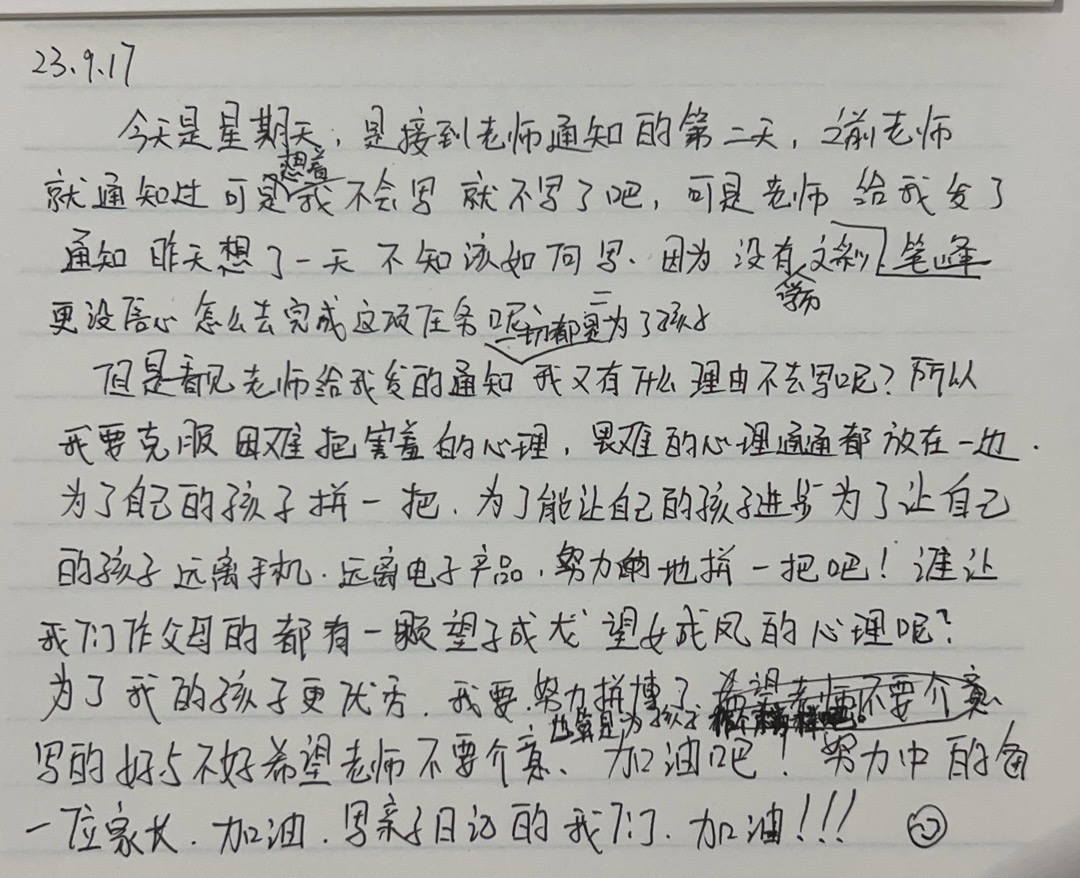 23.9.17
今天是星期天，是接到老师通知的第二天，之前老师
就通知过可是想着我不会写 就不写了吧，可是老师 给我发了
通知 昨天想了一天 不知该如何写、因为 没有学历 文彩 笔峰
更没信心 怎么去完成这项任务呢 一切都是为了孩子
但是看见老师给我发的通知 我又有什么理由不去写呢？所以
我要克服困难把害羞的心理，畏难的心理通通都放在一边.
为了自己的孩子拼一把.为了能让自己的孩子进步 为了让自己
的孩子远离手机.远离电子产品.努力的地拼一把吧！谁让
我们作父母的都有一颗望子成龙 望女成凤的心理呢？
为了我的孩子更优秀.我要.努力拼搏了 希望老师不要介意、
也算是为孩子
写的好与不好希望老师不要介意、加油吧！努力中的每
一位家长.加油.写亲子日记的我们.加油！！！